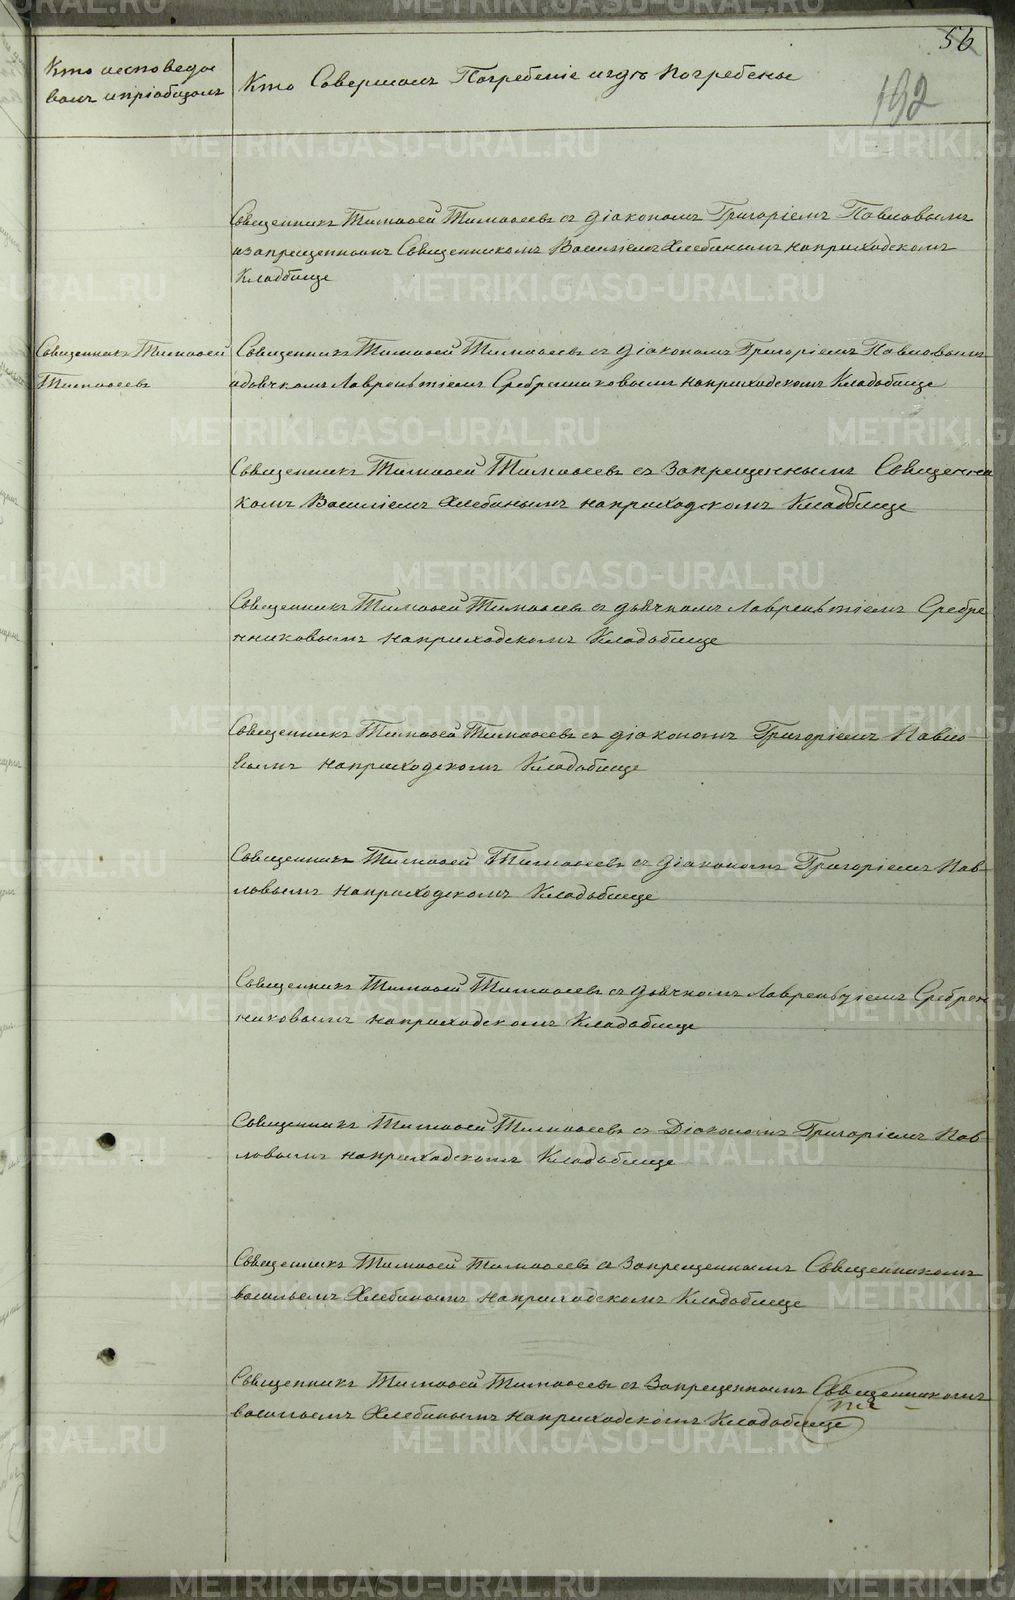 56
192
Кто исповеды
валъ и пріобщалъ
Кто Совершалъ Погребеніе и гдѣ Погребены
Священникъ Тимофей Тимофеевъ съ діакономъ Григоріемъ Павловымъ
и запрещеннымъ Священникомъ Василіемъ Хлебинымъ на приходскомъ
Кладбище
Священникъ Тимофей
Тимофеевъ
Священникъ Тимофей Тимофеевъ съ діакономъ Григоріемъ Павловымъ
и дьячкомъ Лаврентіемъ Сребрениковымъ на приходскомъ Кладьбище
Священникъ Тимофей Тимофеевъ съ Запрещеннымъ Священни
комъ Василіемъ Хлебинымъ на приходскомъ Кладбище
Священникъ Тимофей Тимофеевъ съ дьячкомъ Лаврентіемъ Сребре
нниковымъ на приходскомъ Кладьбище
Священникъ Тимофей Тимофеевъ съ діакономъ Григоріемъ Павло-
вымъ на приходскомъ Кладьбище
Священникъ Тимофей Тимофеевъ съ діакономъ Григоріемъ Пав-
ловымъ на приходскомъ Кладьбище
Священникъ Тимофей Тимофеевъ съ дьячкомъ Лаврентіемъ Сребрен
никовымъ на приходскомъ Кладьбище
Священникъ Тимофей Тимофеевъ съ Діакономъ Григоріемъ Пав
ловымъ на приходскомъ Кладьбище
Священникъ Тимофей Тимофеевъ съ Запрещеннымъ Священникомъ
васильемъ Хлебинымъ на приходскомъ Кладьбище
Священникъ Тимофей Тимофеевъ съ Запрещеннымъ Священникомъ
васильемъ Хлебинымъ на приходскомъ Кладьбище
METRIKI.GASO-URAL.RU